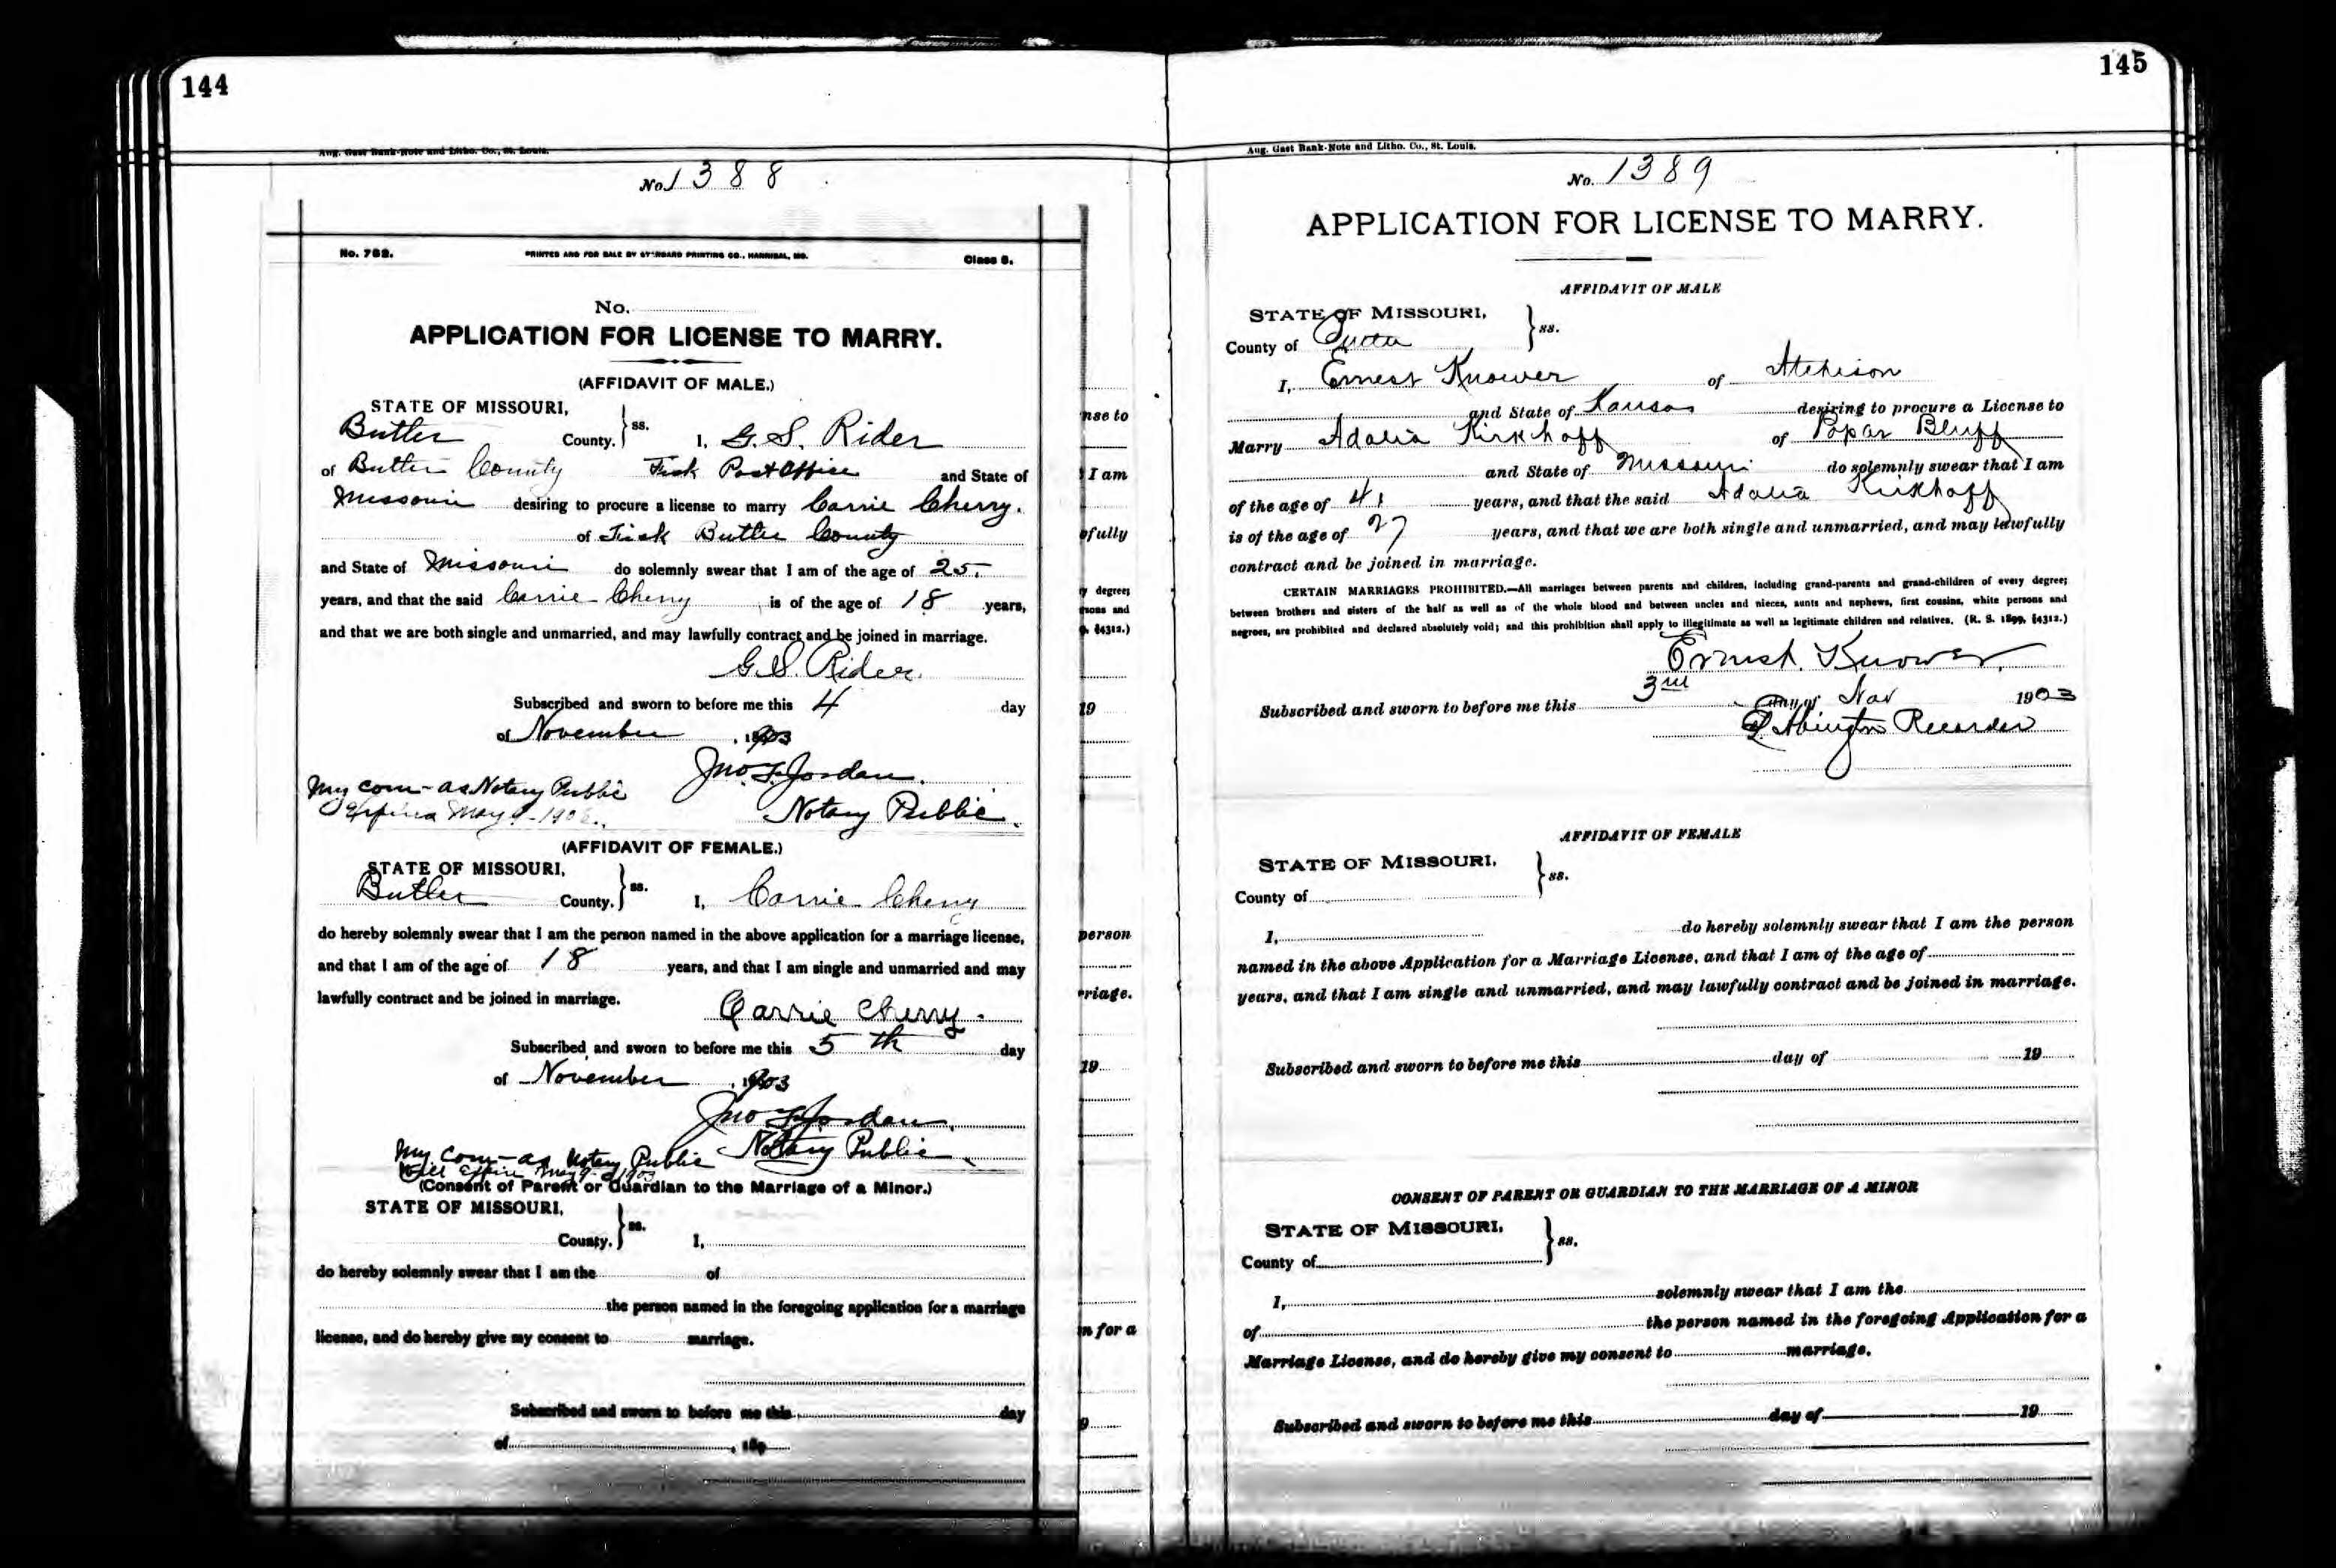 144
Aug. Gast Bank-Note and Litho. Co., St. Louis.
No. 1388
No. 792. PRINTED AND FOR SALE BY STANDARD PRINTING CO., HANNIBAL, MO. Class 8.
No.
APPLICATION FOR LICENSE TO MARRY.
(AFFIDAVIT OF MALE.)
STATE OF MISSOURI,
Butler County. } ss. I, G. S. Rider
of Butler County Fisk Post Office and State of
Missouri desiring to procure a license to marry Carrie Cherry.
of Fisk Butler County
and State of Missouri do solemnly swear that I am of the age of 25.
years, and that the said Carrie Cherry is of the age of 18 years,
and that we are both single and unmarried, and may lawfully contract and be joined in marriage.
G. S. Rider.
Subscribed and sworn to before me this 4 day
of November, 1903
Jno. Jordan.
My com- as Notary Public
Notary Public.
Expires May 1906.
(AFFIDAVIT OF FEMALE.)
STATE OF MISSOURI,
Butler County. } ss. I, Carrie Cherry
do hereby solemnly swear that I am the person named in the above application for a marriage license,
and that I am of the age of 18 years, and that I am single and unmarried and may
lawfully contract and be joined in marriage.
Carrie Cherry.
Subscribed and sworn to before me this 5th day
of November, 1903
Jno Jordan.
My Com- as Notary Public Notary Public
Will Expire May 9
(Consent of Parent or Guardian to the Marriage of a Minor.)
STATE OF MISSOURI,
County. } ss. I,
do hereby solemnly swear that I am the of
the person named in the foregoing application for a marriage
license, and do hereby give my consent to marriage.
Subscribed and sworn to before me this day
of , 189
nse to
I am
fully
y degree;
rsons and
§4312.)
19
person
rriage.
19
n for a
9
145
Aug. Gast Bank-Note and Litho. Co., St. Louis.
No. 1389
APPLICATION FOR LICENSE TO MARRY.
AFFIDAVIT OF MALE
STATE OF MISSOURI,
County of Butler } ss.
I, Ernest Knower of Atchison
and State of Kansas desiring to procure a License to
Marry Adalia Kirkhoff of Popar Bluff
and State of Missouri do solemnly swear that I am
of the age of 41 years, and that the said Adalia Kirkhoff
is of the age of 27 years, and that we are both single and unmarried, and may lawfully
contract and be joined in marriage.
CERTAIN MARRIAGES PROHIBITED.—All marriages between parents and children, including grand-parents and grand-children of every degree;
between brothers and sisters of the half as well as of the whole blood and between uncles and nieces, aunts and nephews, first cousins, white persons and
negroes, are prohibited and declared absolutely void; and this prohibition shall apply to illegitimate as well as legitimate children and relatives. (R. S. 1899, §4312.)
Ernst. Knower.
Subscribed and sworn to before me this 3rd day of Nov 1903
Abington Recorder
AFFIDAVIT OF FEMALE
STATE OF MISSOURI,
County of } ss.
I, do hereby solemnly swear that I am the person
named in the above Application for a Marriage License, and that I am of the age of
years, and that I am single and unmarried, and may lawfully contract and be joined in marriage.
Subscribed and sworn to before me this day of 19
CONSENT OF PARENT OR GUARDIAN TO THE MARRIAGE OF A MINOR
STATE OF MISSOURI,
County of } ss.
I, solemnly swear that I am the
of the person named in the foregoing Application for a
Marriage License, and do hereby give my consent to marriage.
Subscribed and sworn to before me this day of 19